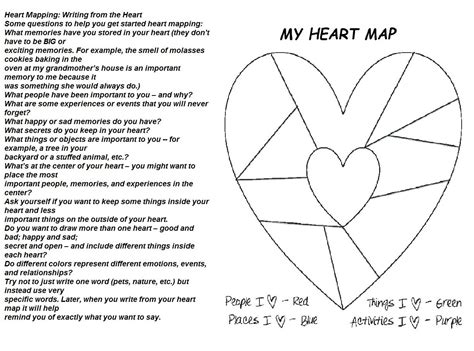 Heart Mapping: Writing from the Heart
Some questions to help you get started heart mapping:
What memories have you stored in your heart (they don't
have to be BIG or
exciting memories. For example, the smell of molasses
cookies baking in the
oven at my grandmother's house is an important
memory to me because it
was something she would always do.)
What people have been important to you – and why?
What are some experiences or events that you will never
forget?
What happy or sad memories do you have?
What secrets do you keep in your heart?
What things or objects are important to you -- for
example, a tree in your
backyard or a stuffed animal, etc.?
What's at the center of your heart – you might want to
place the most
important people, memories, and experiences in the
center?
Ask yourself if you want to keep some things inside your
heart and less
important things on the outside of your heart.
Do you want to draw more than one heart – good and
bad; happy and sad;
secret and open – and include different things inside
each heart?
Do different colors represent different emotions, events,
and relationships?
Try not to just write one word (pets, nature, etc.) but
instead use very
specific words. Later, when you write from your heart
map it will help
remind you of exactly what you want to say.
MY HEART MAP
People I ♡ – Red
Things I ♡ – Green
Places I ♡ – Blue
Activities I ♡ – Purple